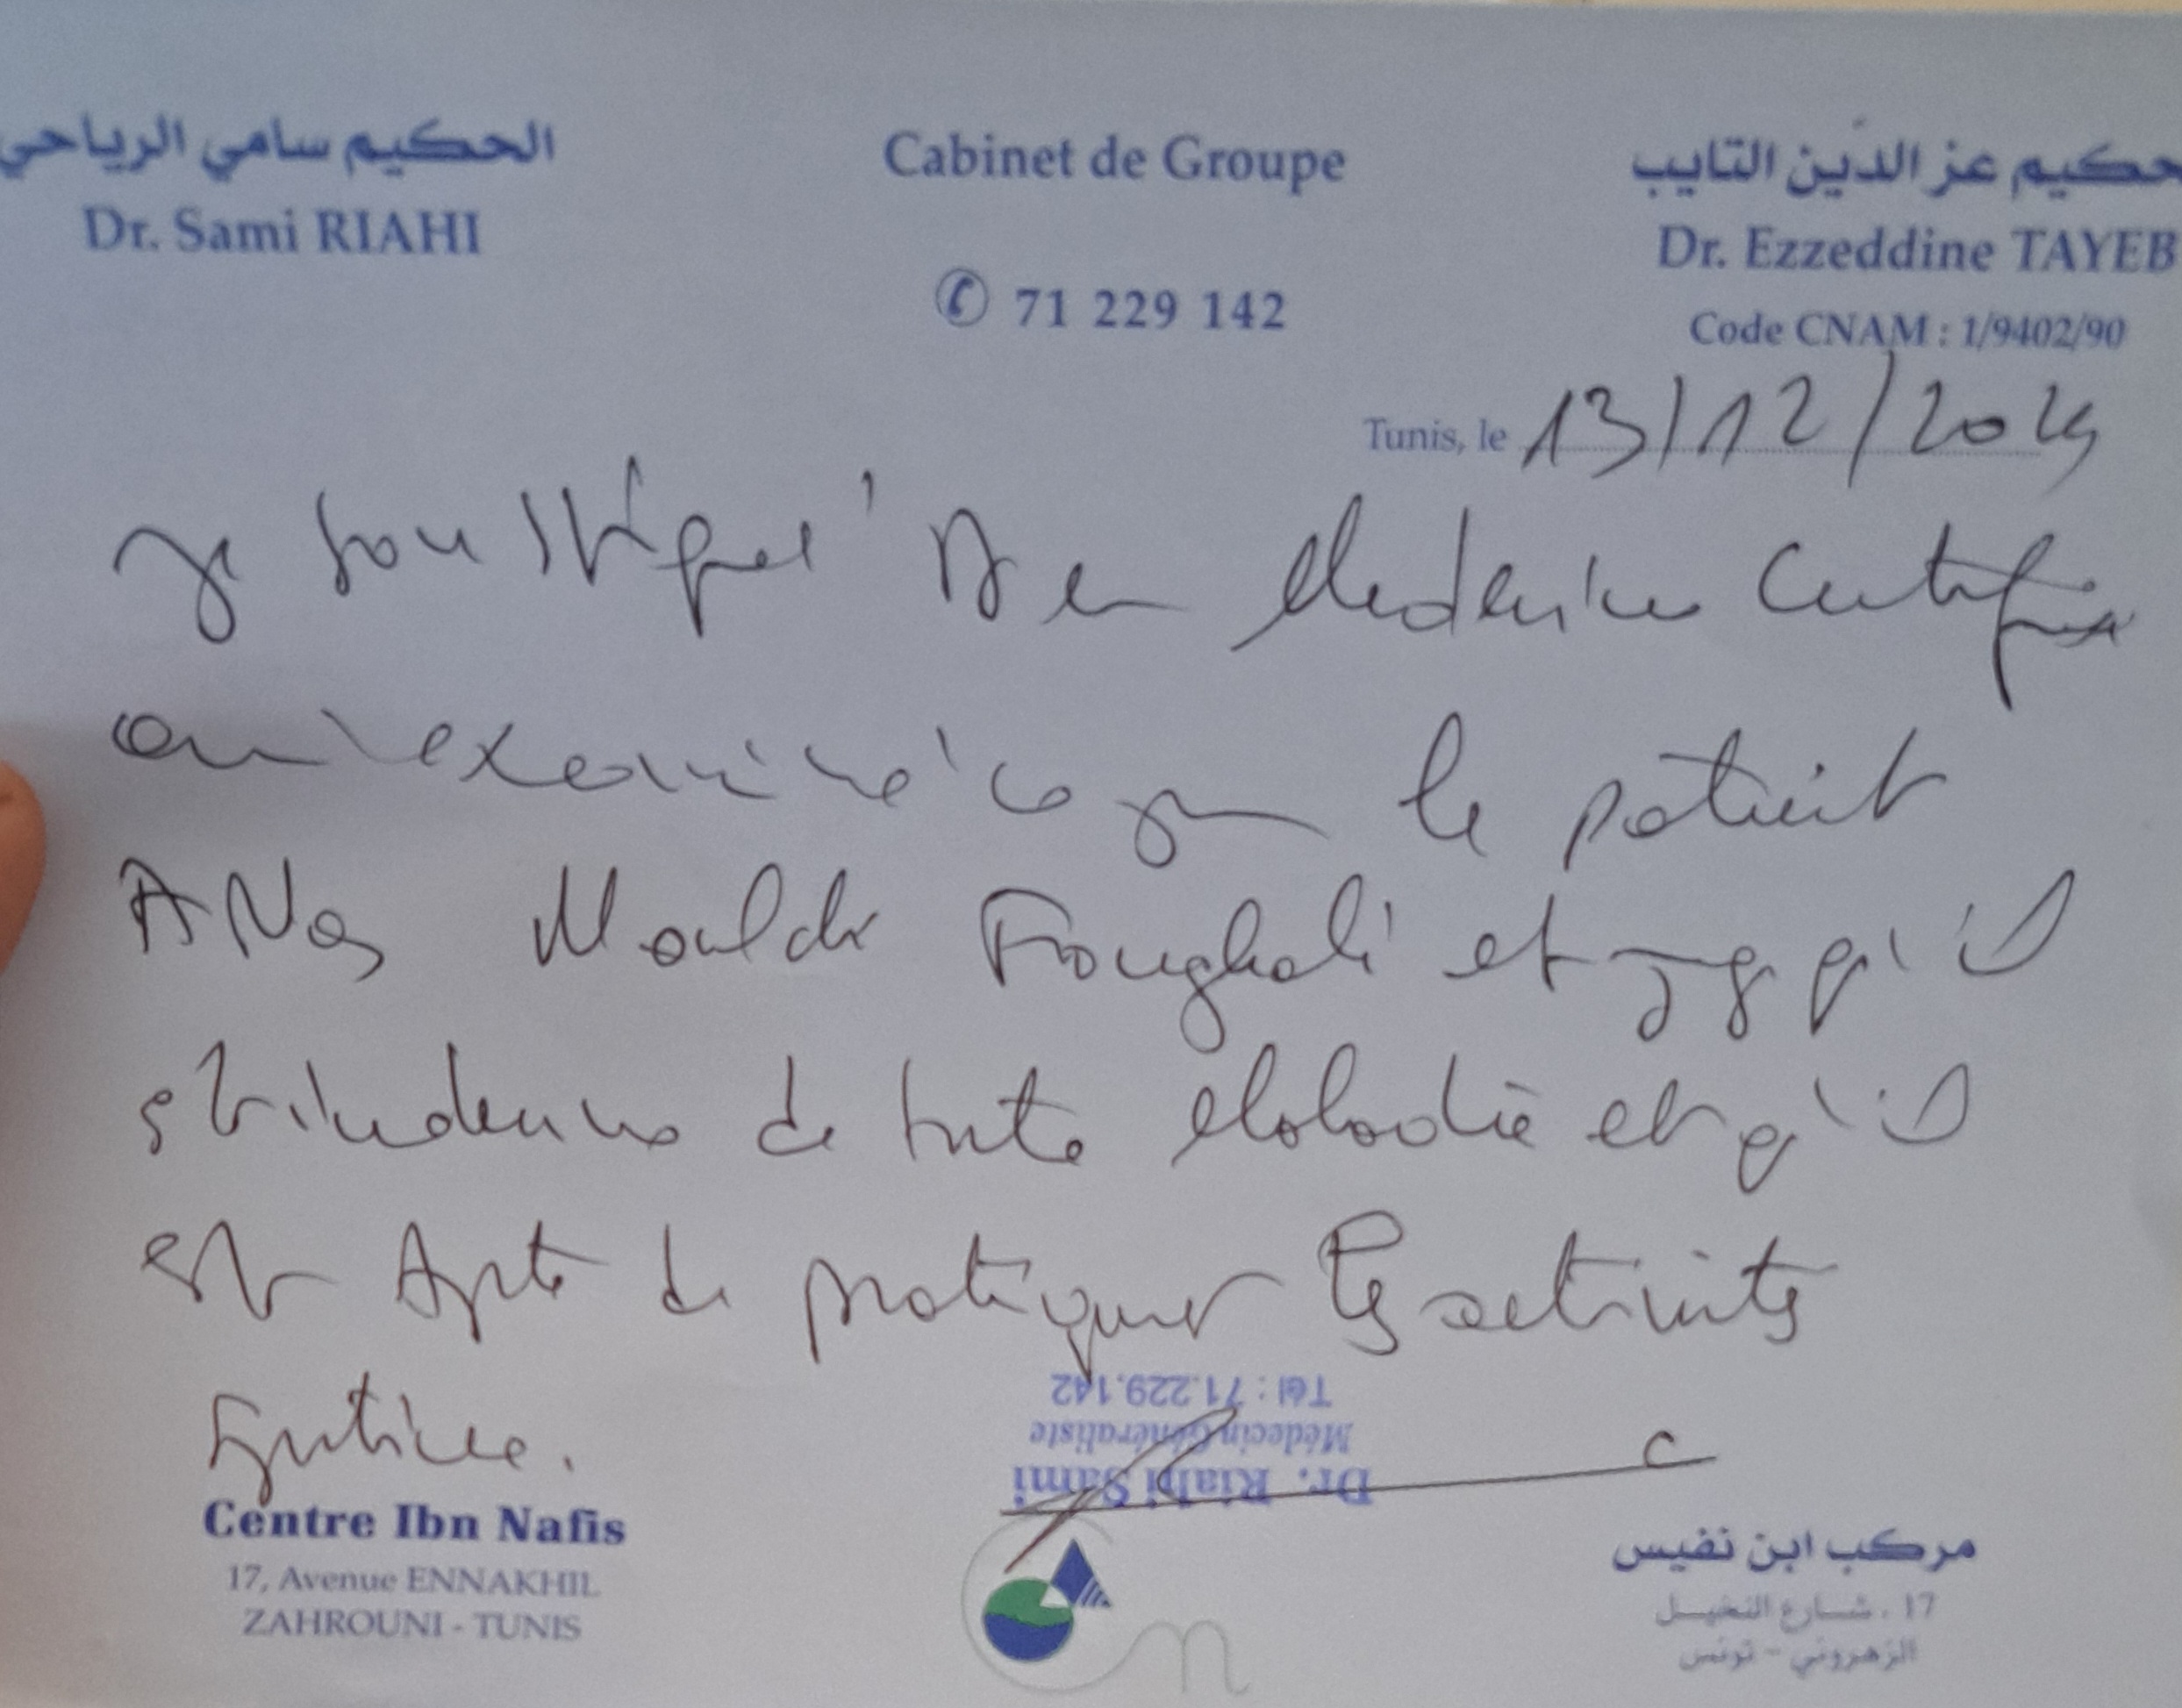 الحكيم سامي الرياحي
Dr. Sami RIAHI
Cabinet de Groupe
71 229 142
حكيم عز الدّين التايب
Dr. Ezzeddine TAYEB
Code CNAM : 1/9402/90
Tunis, le 13/12/2024
Je soussigné Dr en Medecine certifie
avoir examiné ce jour le patient
ANas Mouldi Froughali et que qu'il
est indemne de toute Maladie et qu'il
est Apte de pratiquer les activités
sportives.
Tél : 71.229.142
Médecin Généraliste
Dr. Riahi Sami
Centre Ibn Nafis
17, Avenue ENNAKHIL
ZAHROUNI - TUNIS
مركب ابن نفيس
17 ، شارع النخيل
الزهروني - تونس